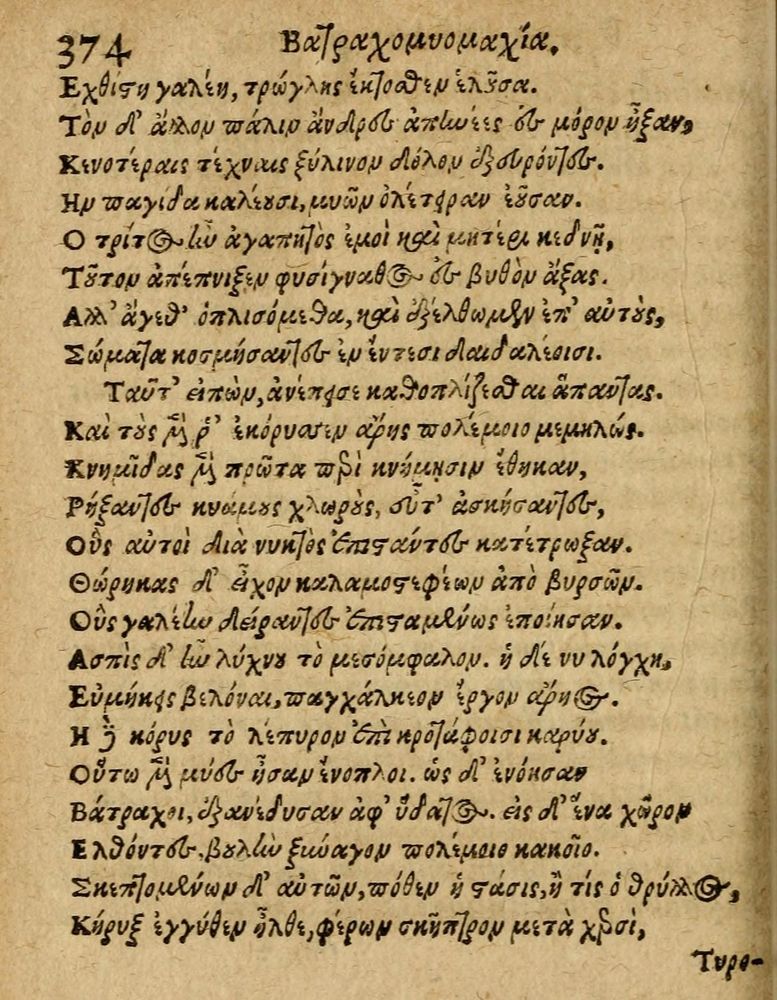 374 Βατραχομυομαχία.
Εχθίςη γαλέη, τρώγλης ἔκτοσθεν ἑλοῦσα.
Τὸν δ' ἄλλον πάλιν ἄνδρες ἀπηνέες ἐς μόρον ἦξαν,
Κενοτέραις τέχναις ξύλινον δόλον ἐξευρόντες.
Ην παγίδα καλέουσι, μυῶν ὀλέτειραν ἐοῦσαν.
Ο τρίτος ἦν ἀγαπητὸς ἐμοὶ καὶ μητέρι κεδνῇ,
Τοῦτον ἀπέπνιξεν φυσίγναθος ἐς βυθὸν ἄξας.
Αλλ' ἄγεθ' ὁπλισόμεθα, καὶ ἐξέλθωμεν ἐπ' αὐτοὺς,
Σώματα κοσμήσαντες ἐν ἔντεσι δαιδαλέοισι.
Ταῦτ' εἰπὼν, ἀνέπεισε καθοπλίζεσθαι ἅπαντας.
Καὶ τοὺς μέν ῥ' ἐκόρυσσεν ἄρης πολέμοιο μεμηλώς.
Κνημῖδας μὲν πρῶτα περὶ κνήμησιν ἔθηκαν,
Ρήξαντες κυάμους χλωροὺς, εὖτ' ἀσκήσαντες,
Οὓς αὐτοὶ διὰ νυκτὸς ἐπιςάντες κατέτρωξαν.
Θώρηκας δ' εἶχον καλαμοςεφέων ἀπὸ βυρσῶν.
Οὓς γαλέην δείραντες ἐπιςαμένως ἐποίησαν.
Ασπὶς δ' ἦν λύχνου τὸ μεσόμφαλον. ἡ δέ νυ λόγχη,
Εὐμήκεις βελόναι, παγχάλκεον ἔργον ἄρηος.
Η δὲ κόρυς τὸ λέπυρον ἐπὶ κροτάφοισι καρύου.
Οὕτω μὲν μύες ἦσαν ἔνοπλοι. ὡς δ' ἐνόησαν
Βάτραχοι, ἐξανέδυσαν ἀφ' ὕδατος. εἰς δ' ἕνα χῶρον
Ελθόντες, βουλὴν ξύναγον πολέμοιο κακοῖο.
Σκεπτομένων δ' αὐτῶν, πόθεν ἡ ςάσις, ἢ τίς ὁ θρύλλος,
Κήρυξ ἐγγύθεν ἦλθε, φέρων σκῆπτρον μετὰ χερσὶ,
Τυρο-